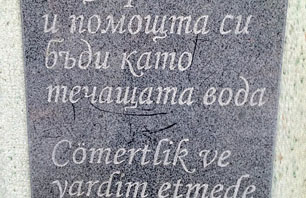 и помощта си
бъди като
течащата вода
Cömertlik ve
yardim etmede